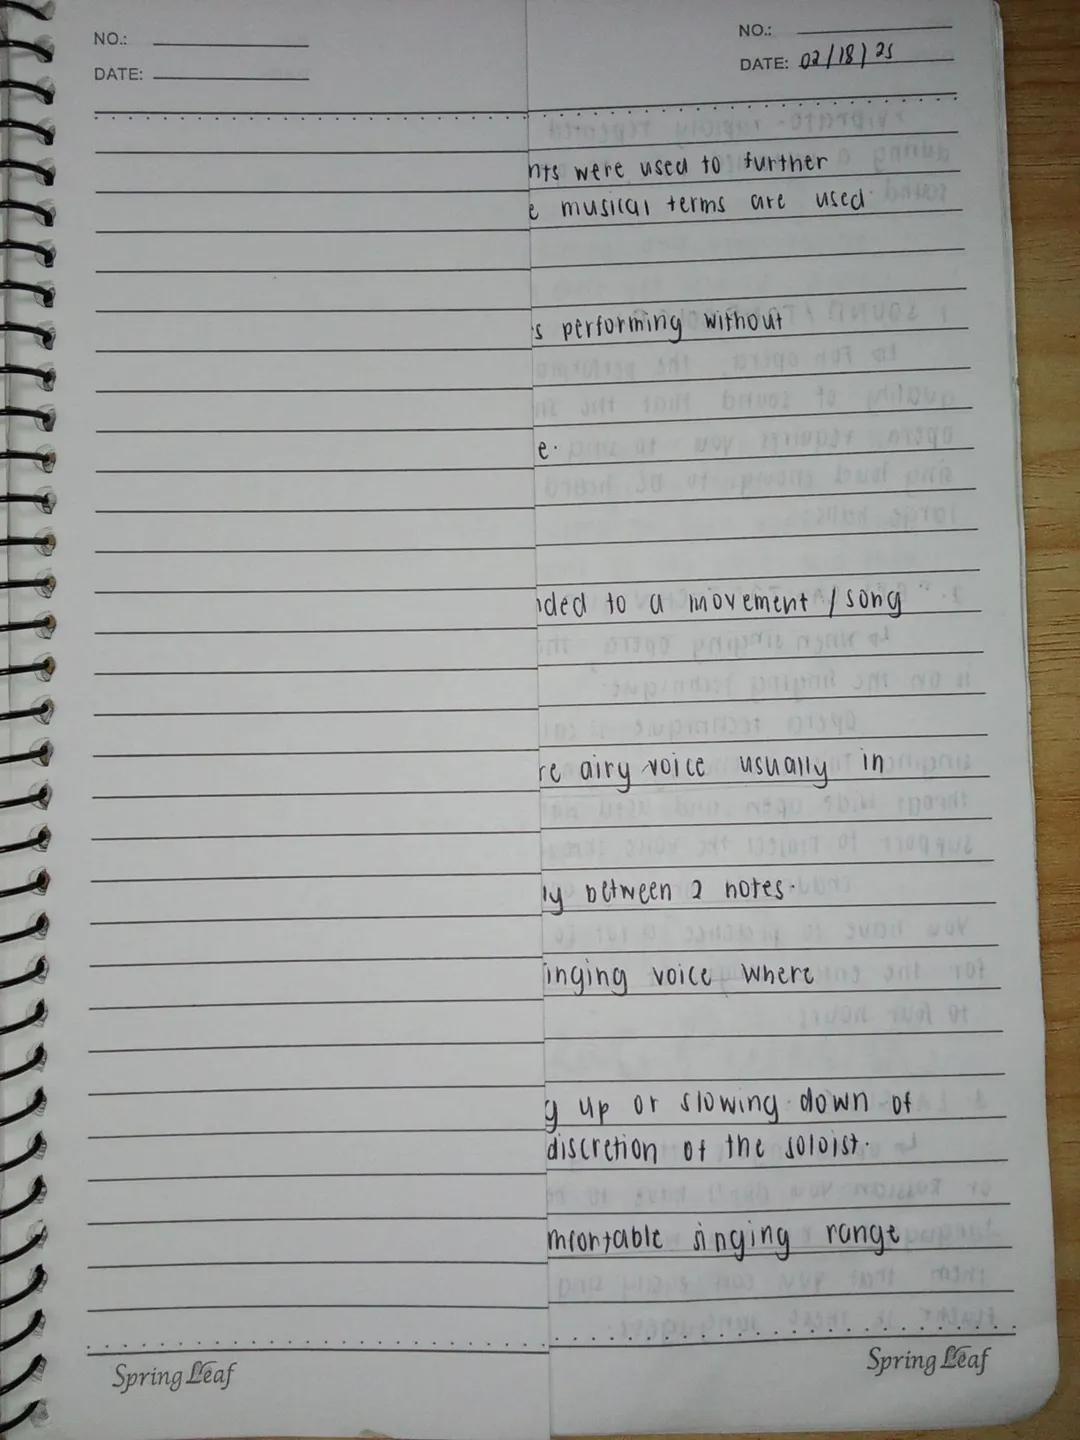 NO.:
DATE:
NO.:
DATE: 02/18/25
nts were used to further
e musical terms are used
s performing without
e.
nded to a movement / song
re airy voice usually in
ly between 2 notes.
inging voice where
g up or slowing down of
discretion of the soloist.
mfortable singing range
Spring Leaf
Spring Leaf